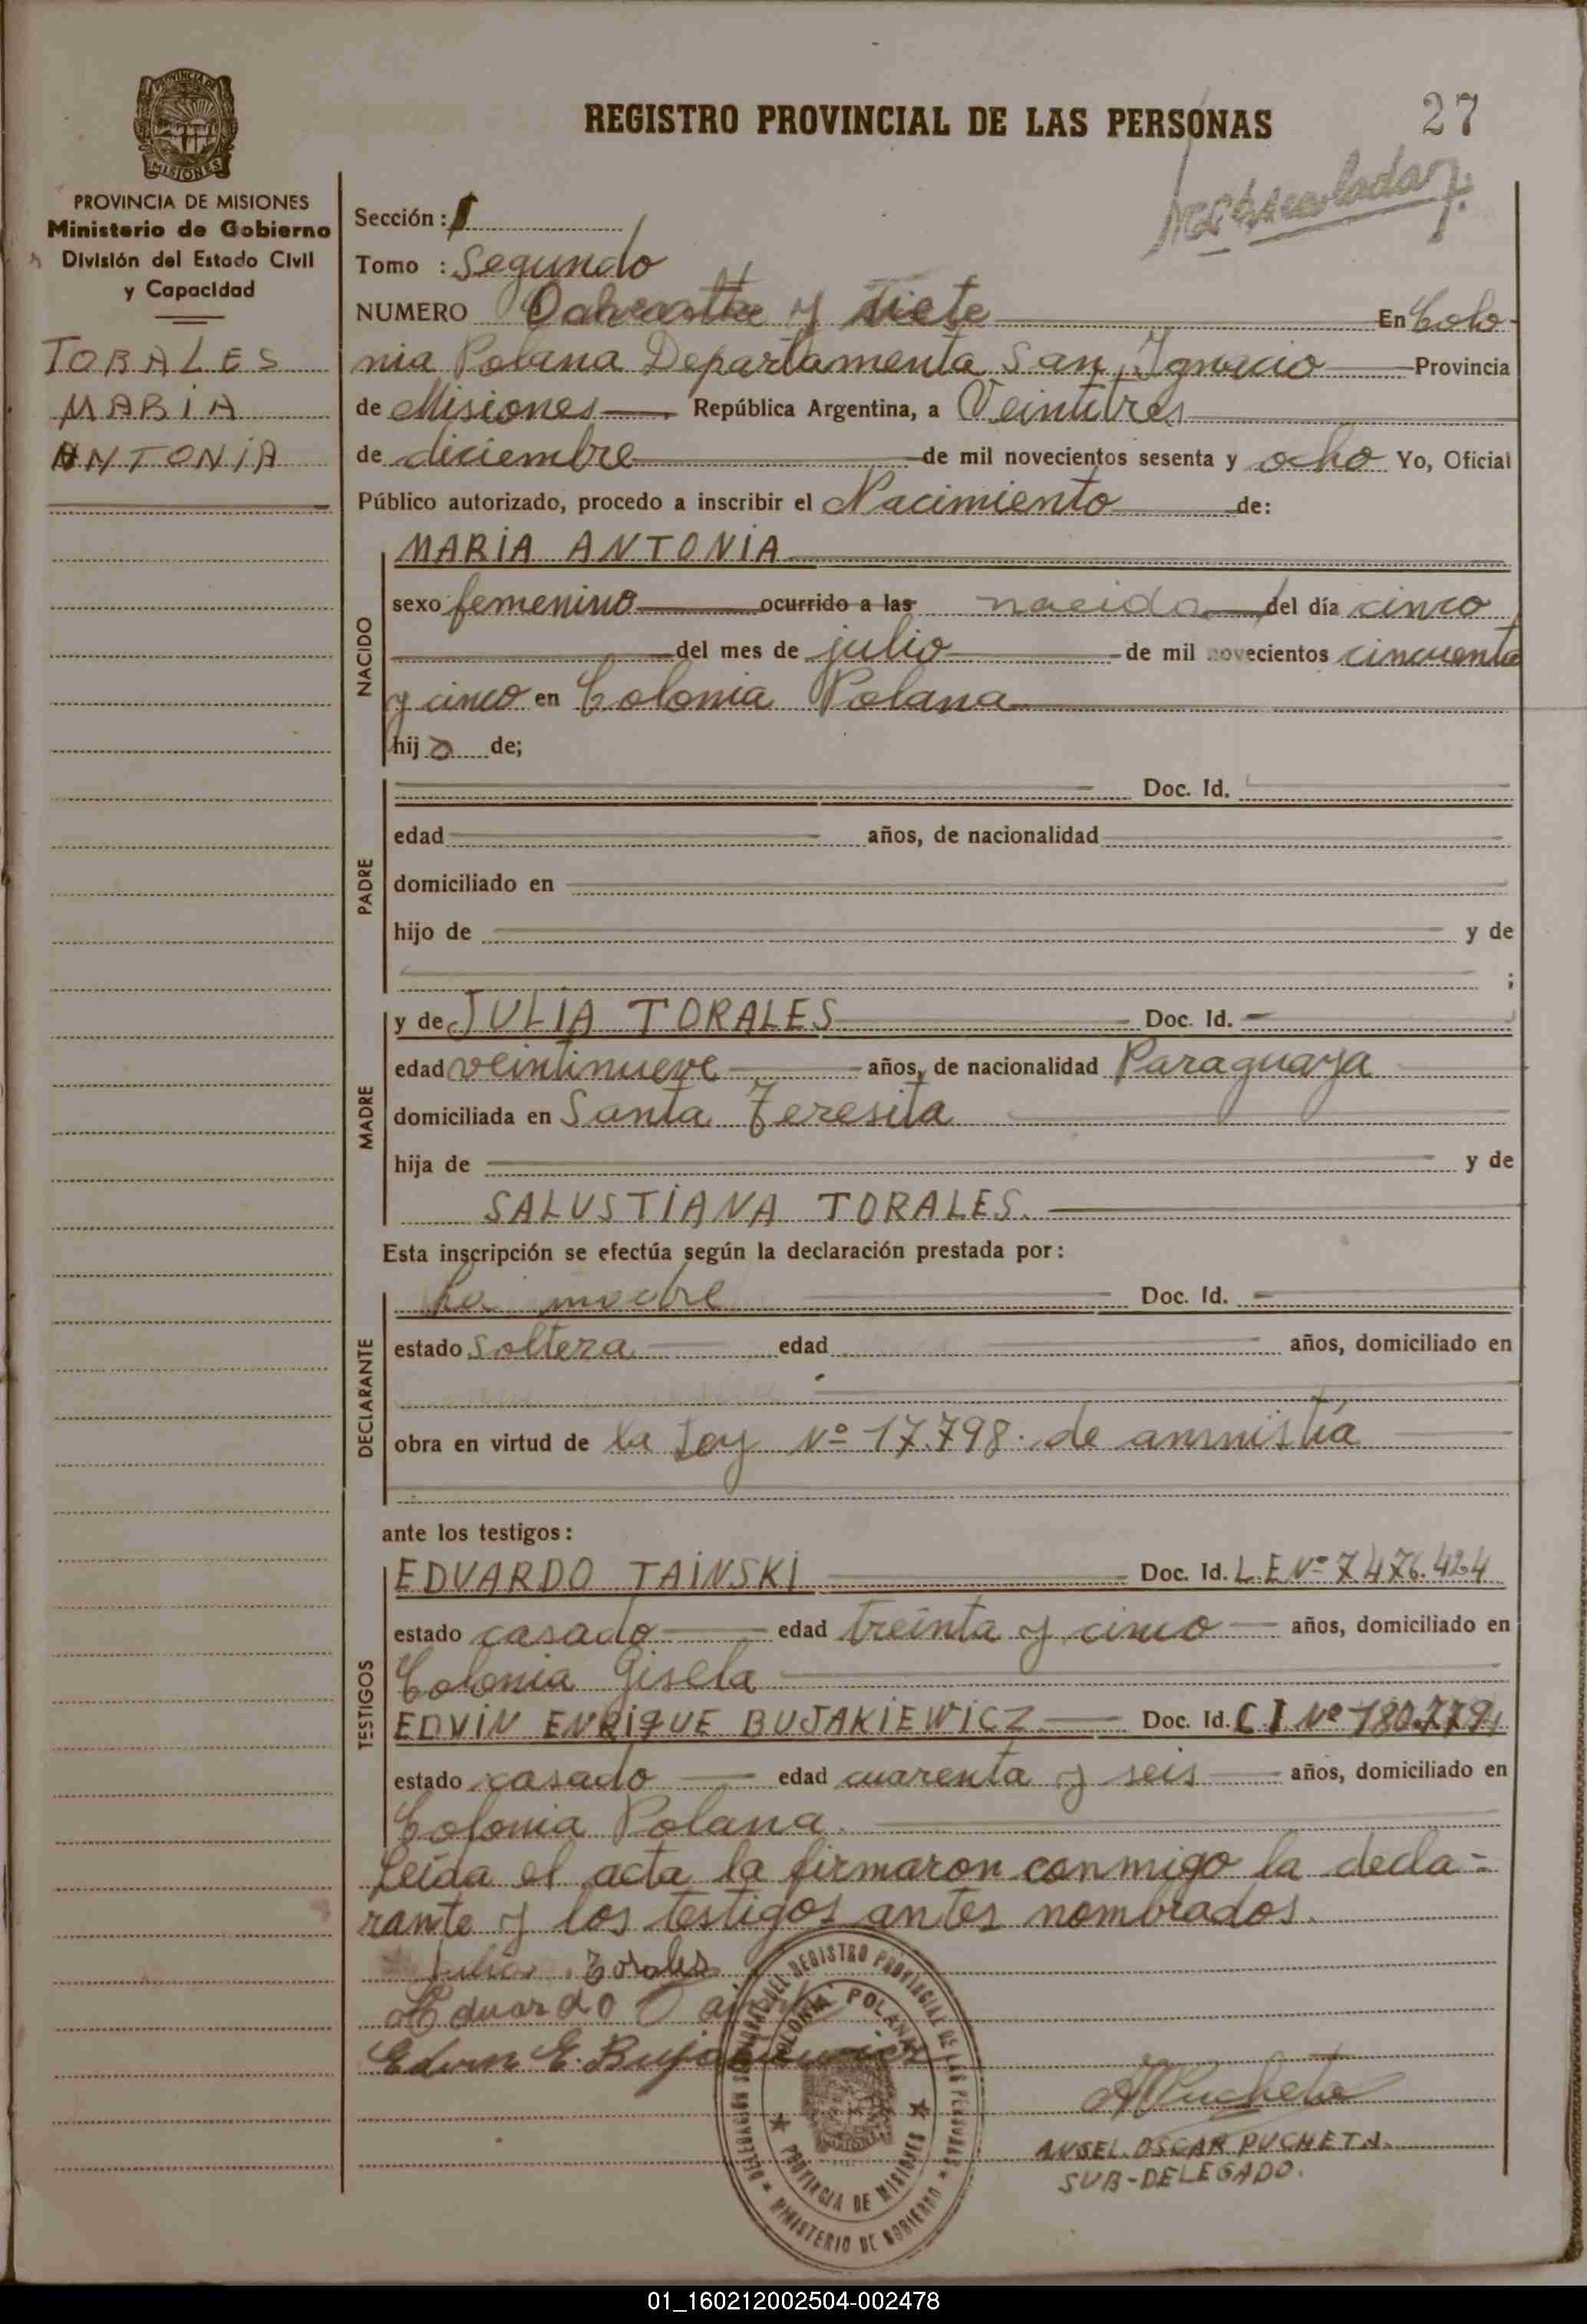 REGISTRO PROVINCIAL DE LAS PERSONAS
27
PROVINCIA DE MISIONES
Ministerio de Gobierno
División del Estado Civil
y Capacidad
TORALES
MARIA
ANTONIA
Sección :
Tomo : Segundo
NUMERO Ochenta y Siete En Colo-
nia Polana Departamento San Ignacio Provincia
de Misiones República Argentina, a Veintitres
de diciembre de mil novecientos sesenta y ocho Yo, Oficial
Público autorizado, procedo a inscribir el Nacimiento de:
NACIDO
MARIA ANTONIA
sexo femenino ocurrido a las nacida del día cinco
del mes de julio de mil novecientos cincuenta
y cinco en Colonia Polana
hija de;
PADRE
Doc. Id.
edad años, de nacionalidad
domiciliado en
hijo de y de
;
MADRE
y de JULIA TORALES Doc. Id.
edad veintinueve años, de nacionalidad Paraguaya
domiciliada en Santa Teresita
hija de y de
SALUSTIANA TORALES.
Esta inscripción se efectúa según la declaración prestada por:
DECLARANTE
La madre Doc. Id.
estado soltera edad años, domiciliado en
obra en virtud de la Ley Nº 17.798. de amnistía
ante los testigos:
TESTIGOS
EDUARDO TAINSKI Doc. Id. L.E Nº 7.476.424
estado casado edad treinta y cinco años, domiciliado en
Colonia Gisela
EDVIN ENRIQUE BUJAKIEWICZ Doc. Id. C.I Nº 180.779
estado casado edad cuarenta y seis años, domiciliado en
Colonia Polana.
Leída el acta la firmaron conmigo la decla=
rante y los testigos antes nombrados.
Julia Torales
Eduardo
Edvin E. Bujakiewicz
COLONIA POLANA
PROVINCIA DE MISIONES
DEL REGISTRO PROVINCIAL DE LAS PERSONAS
MINISTERIO DE GOBIERNO
APucheta
ANGEL OSCAR PUCHETA.
SUB-DELEGADO.
01_160212002504-002478